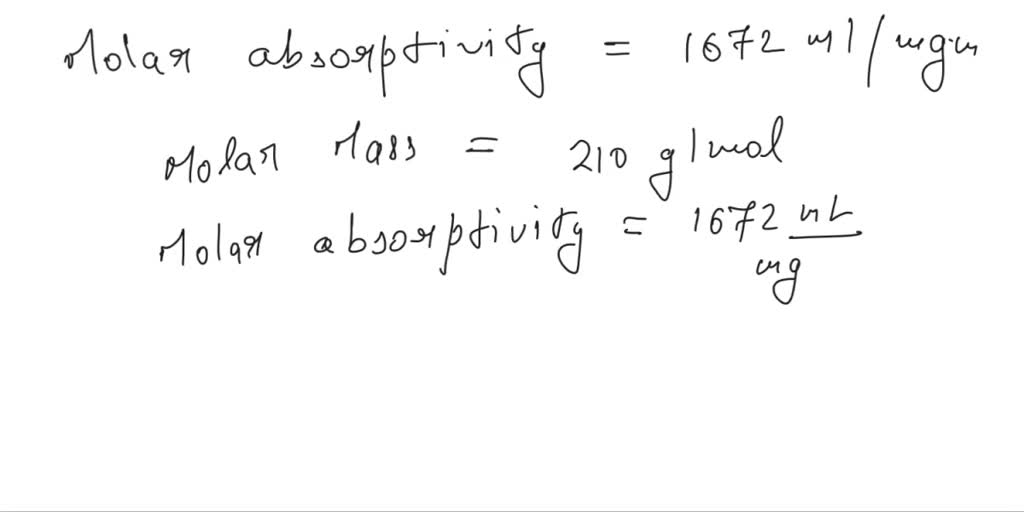 Molar absorptivity = 1672 ml/mg.m
Molar Mass = 210 g/mol
Molar absorptivity = 1672 mL
mg